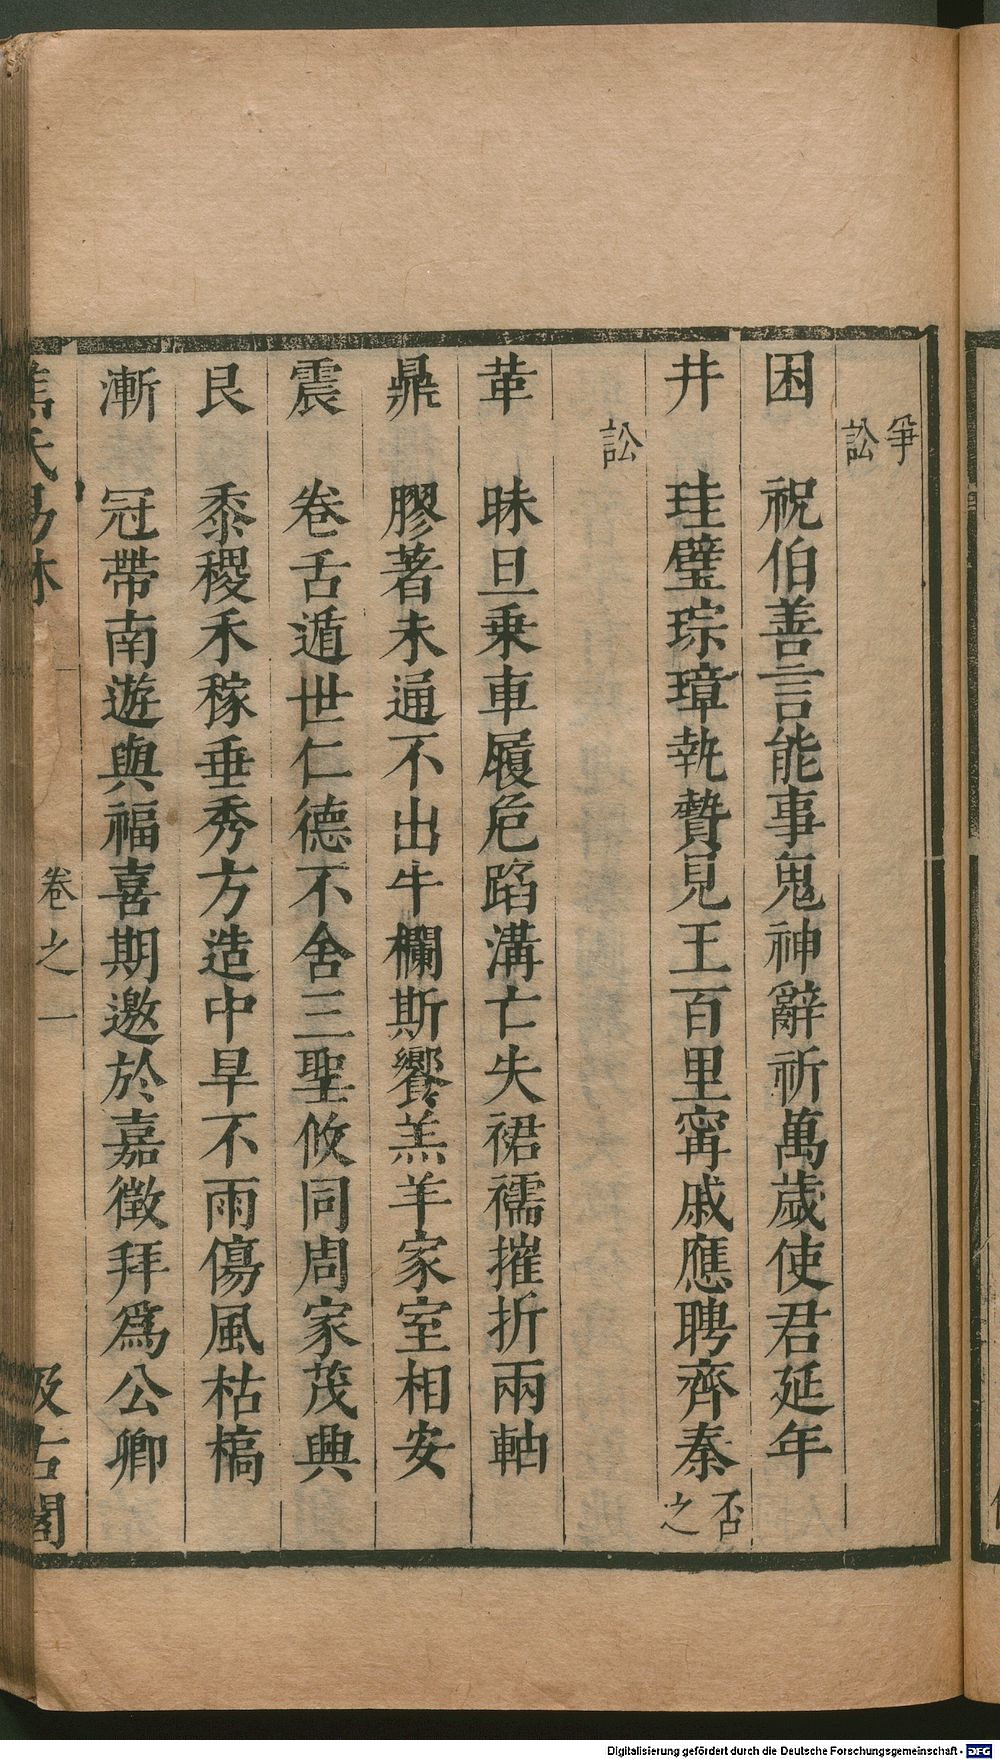 爭
訟
困　祝伯善言能事鬼神辭祈萬歲使君延年
井　珪璧琮璋執贄見王百里甯戚應聘齊秦否
之
訟
革　昧旦乗車履危蹈溝亡失裙襦摧折兩軸
鼎　膠著未通不出牛欄斯饗羔羊家室相安
震　卷舌遁世仁德不舍三聖攸同周家茂興
艮　黍稷禾稼垂秀方造中旱不雨傷風枯槁
漸　冠帶南遊與福喜期邀於嘉徵拜爲公卿
焦氏易林　卷之一　汲古閣
Digitalisierung gefördert durch die Deutsche Forschungsgemeinschaft - DFG